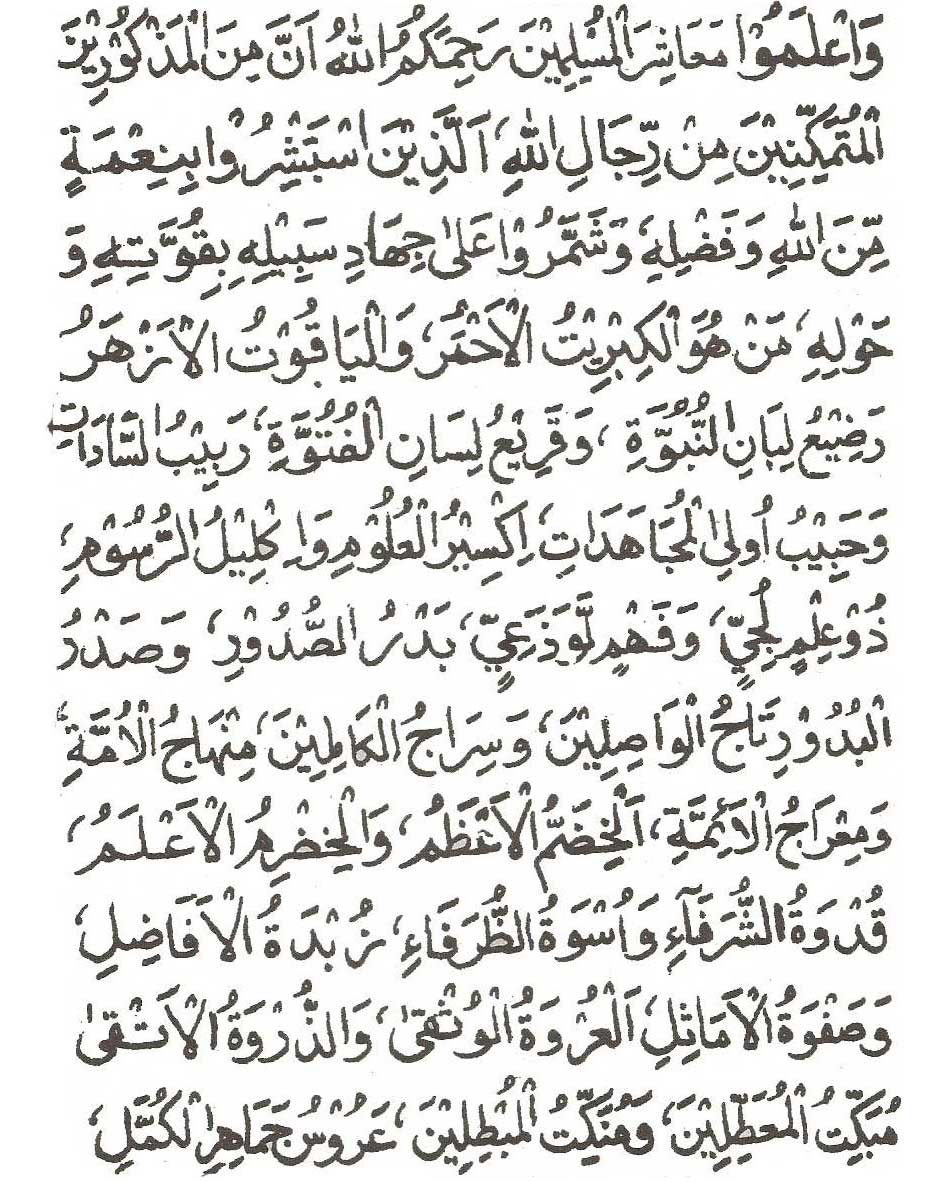 وَاعْلَمُوْا مَعَاشِرَ الْمُسْلِمِيْنَ رَحِمَكُمُ اللهُ اَنَّ مِنَ الْمَذْكُوْرِيْنَ
الْمُتَمَكِّنِيْنَ مِنْ رِّجَالِ اللهِ، اَلَّذِيْنَ اسْتَبْشِرُوْا بِنِعْمَةٍ
مِّنَ اللهِ وَفَضْلِهِ، وَشَمَّرُوْا عَلىٰ جِهَادِ سَبِيْلِهِ بِقُوَّتِهِ وَ
حَوْلِهِ، مَنْ هُوَ الْكِبْرِيْتُ الْاَحْمَرُ، وَالْيَاقُوْتُ الْاَزْهَرُ
رَضِيْعُ لِبَانِ النُّبُوَّةِ، وَقَرِيْعُ لِسَانِ الْفُتُوَّةِ، رَبِيْبُ السَّادَاتِ
وَحَبِيْبُ اُولِى الْمُجَاهَدَاتِ، اِكْسِيْرُ الْعُلُوْمِ وَاِكْلِيْلُ الرُّسُوْمِ،
ذُوْ عِلْمٍ لُجِّيٍّ، وَفَهْمٍ لَّوْذَعِيٍّ، بَدْرُ الصُّدُوْرِ، وَصَدْرُ
الْبُدُوْرِ تَاجُ الْوَاصِلِيْنَ، وَسِرَاجُ الْكَامِلِيْنَ، مِنْهَاجُ الْاُمَّةِ،
وَمِعْرَاجُ الْاَئِمَّةِ، اَلْخِضَمُّ الْاَعْظَمُ، وَالْخِضْرِمُ الْاَعْلَمُ،
قُدْوَةُ الشُّرَفَآءِ وَاُسْوَةُ الظُّرَفَاءِ، زُبْدَةُ الْاَفَاضِلِ،
وَصَفْوَةُ الْاَمَاثِلِ، اَلْعُرْوَةُ الْوُثْقىٰ، وَالذُّرْوَةُ الْاَتْقىٰ
مُبَكِّتُ الْمُعَطِّلِيْنَ، وَمُنَكِّتُ الْمُبْطِلِيْنَ، عَرُوْسُ جَمَاهِرِ الْكُمَّلِ،